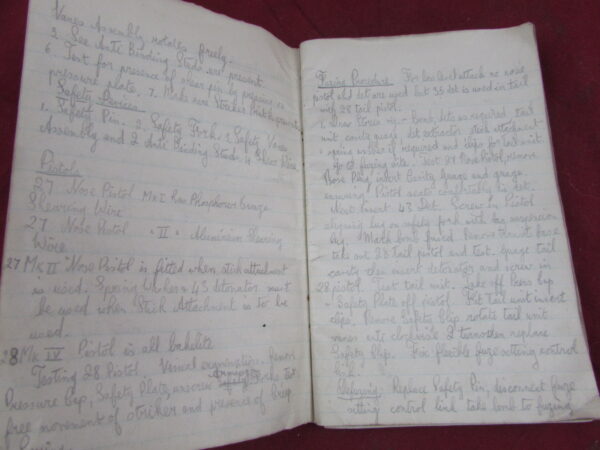 Vanes Assembly rotates freely.
5. See Anti Binding Studs are present
6. Test for presence of shear pin by pressing on
pressure plate. 7. Make sure Stocker
Safety Devices
1. Safety Pin. 2. Safety Fork. 3. Safety Vanes
Assembly and 2 Anti Binding Studs. 4. Shear Wire
Pistols
27 Nose Pistol Mk I has Phosphorus Bronze
Shearing Wire
27 Nose Pistol " II " Aluminium Shearing
Wire
27 Mk II Nose Pistol is fitted when stick attachment
is used. Spring Washer & 43 detonator must
be used when Stick Attachment is to be
used.
28 Mk IV Pistol is all bakelite
Testing 28 Pistol. Visual examination. Remove
Pressure Cap, Safety Plate, unscrew Test
free movement of striker and presence of creep
Fuzing Procedure. For low level attack no nose
pistol and det are used but 35 det is used in tail
with 28 tail pistol.
1. Draw Stores viz - Bomb, dets as required tail
unit cavity gauge det extractor stick attachment
spring washer if required and clips for tail unit.
Go to fuzing site. Test 27 Nose Pistol, remove
Nose Plug insert Cavity Gauge and gauge
ensuring Pistol seats correctly in det.
Next insert 43 Det. Screw in Pistol
aligning lug on safety fork with suspension
lug. Mark bomb fuzed. Remove transit base
take out 28 tail pistol and test. Gauge tail
cavity then insert detonator and screw in
28 pistol. Test tail unit. Take off Press Cap
- Safety Plate off pistol. Fit tail unit insert
clips. Remove Safety Clip rotate tail unit
vanes anti clockwise 2 turns then replace
Safety Clip. Fix flexible fuze setting control
link.
Defuzing: Replace Safety Pin, disconnect fuze
setting control link take bomb to fuzing